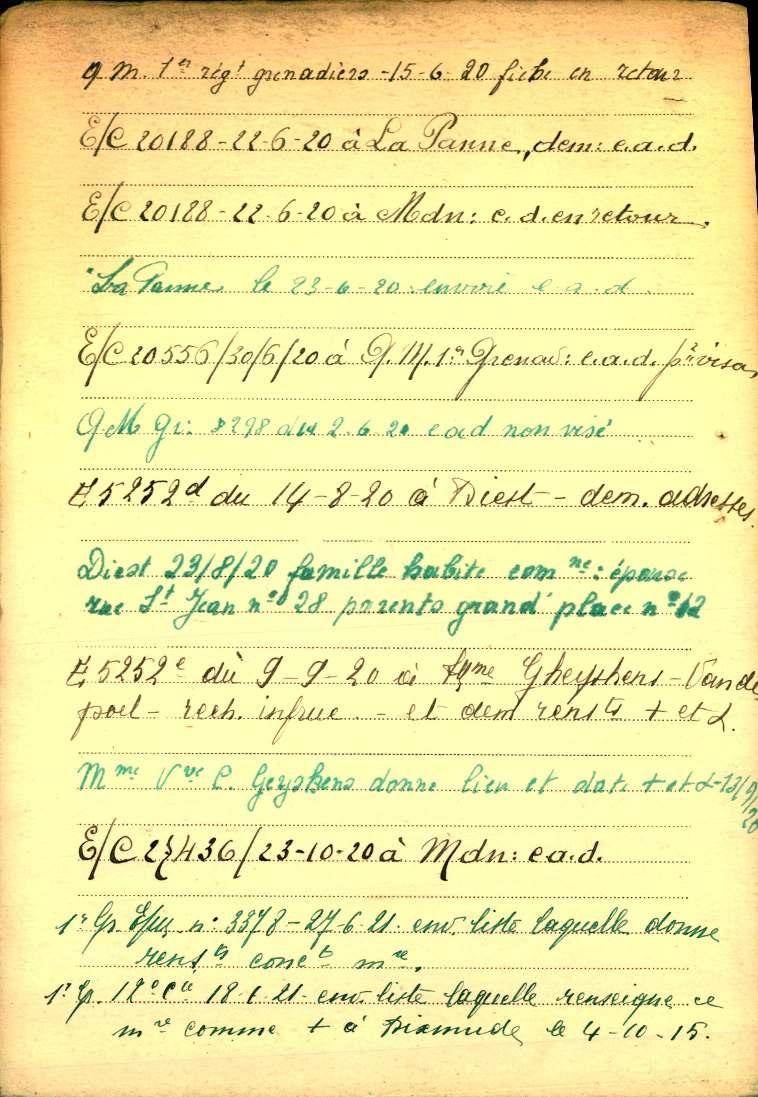 Q M. 1er régt grenadiers -15-6-20 fiche en retour
E/C 20188-22-6-20 à La Panne, dem: e.a.d.
E/C 20128-22-6-20 à Mdn: e.d. en retour.
La Panne le 23-6-20 envoie e a d
E/C 20556/30/6/20 à Q.M. 1er Grenad: e.a.d. pr visa
Q M Gr: 298 du 2.6.20 ead non visé
E 5252d du 14-8-20 à Diest - dem. adresses.
Diest 23/8/20 famille habite comne: épouse
rue St Jean no 28 parents grand'place no 12
E 5252e du 9-9-20 à Gheyshens - Vande
poel - rech. infruc. - et dem rensts + et
Mme Vve C. Geyshens donne lieu et date + et 13/9/20
E/C 436/23-10-20 à Mdn: e a.d.
1r Gr. no 3378-27-6-21. env. liste laquelle donne
rensts conct mre.
1r Gr. 12e Cie 18-6-21 env. liste laquelle renseigne ce
mre comme + à Dixmude le 4-10-15.